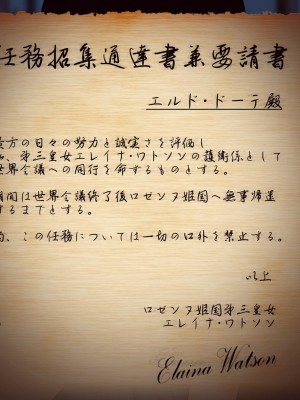 任務招集通達書兼要請書
エルド・ドーテ殿
貴方の日々の努力と誠実さを評価し
第三皇女エレイナ・ワトソンの護衛係として
世界会議への同行を命ずるものとする。
期間は世界会議終了後ロゼンヌ姫国へ無事帰還
するまでとする。
、この任務については一切の口外を禁止する。
以上
ロゼンヌ姫国第三皇女
エレイナ・ワトソン
Elaina Watson